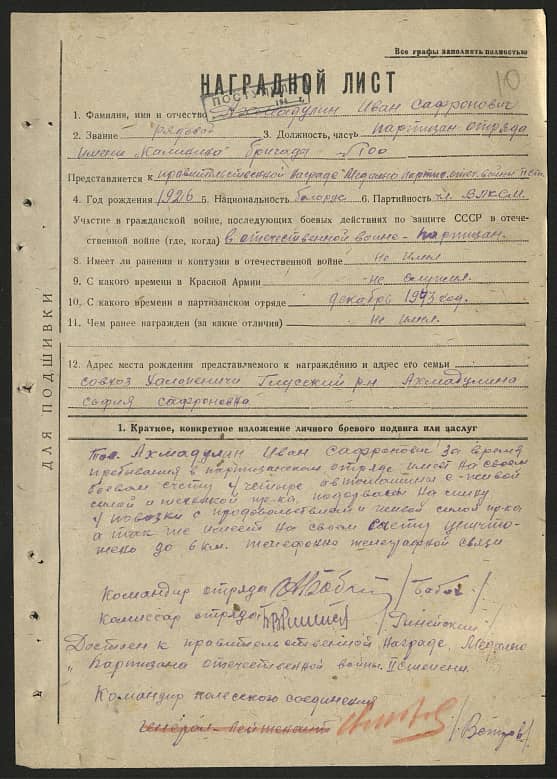 Все графы заполнять полностью
10
НАГРАДНОЙ ЛИСТ
1. Фамилия, имя и отчество Ахмадулин Иван Сафронович
2. Звание рядовой 3. Должность, часть партизан отряда
имени "Калинина" бригада № 100
Представляется к правительственной награде Медалью партиз. отеч. войны II ст.
4. Год рождения 1926 5. Национальность белорус 6. Партийность чл. ВЛКСМ.
Участие в гражданской войне, последующих боевых действиях по защите СССР в отече-
ственной войне (где, когда) в отечественной войне - партизан.
8. Имеет ли ранения и контузии в отечественной войне не имел
9. С какого времени в Красной Армии не служил.
10. С какого времени в партизанском отряде декабрь 1943 год.
11. Чем ранее награжден (за какие отличия) не имел.
12. Адрес места рождения представляемого к награждению и адрес его семьи
совхоз Халопеничи Глусский р-н Ахмадулина
София Сафроновна
ДЛЯ ПОДШИВКИ
1. Краткое, конкретное изложение личного боевого подвига или заслуг
Тов. Ахмадулин Иван Сафронович за время
пребывания в партизанском отряде имеет на своем
боевом счету 4 четыре автомашины с живой
силой и техникой пр-ка, подорвал на
4 повозки с продовольствием и живой силой пр-ка
а так же имеет на своем счету уничто-
жено до 6 км. телефонно телеграфной связи
Командир отряда
Комиссар отряда
Достоин к правительственной награде, Медалью
„Партизана отечественной войны. II степени.
Командир полесского соединения
генерал-лейтенант /Ветров/